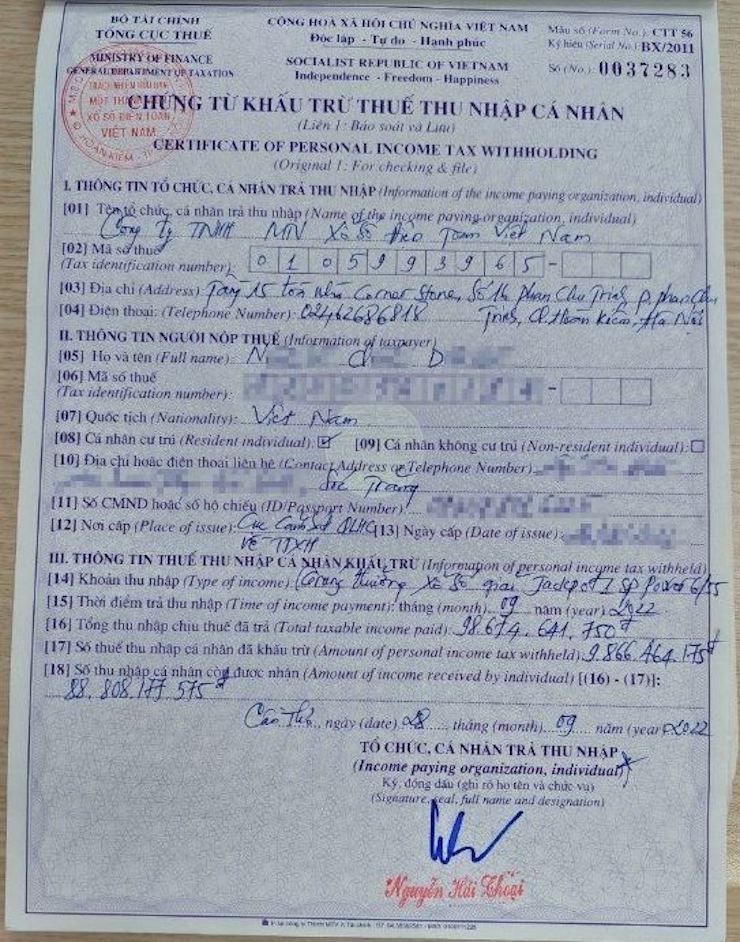 BỘ TÀI CHÍNH
TỔNG CỤC THUẾ
MINISTRY OF FINANCE
GENERAL DEPARTMENT OF TAXATION
CỘNG HOÀ XÃ HỘI CHỦ NGHĨA VIỆT NAM
Độc lập - Tự do - Hạnh phúc
SOCIALIST REPUBLIC OF VIETNAM
Independence - Freedom - Happiness
Mẫu số (Form No.): CTT 56
Ký hiệu (Serial No.): BX/2011
Số (No.): 0037283
TRÁCH NHIỆM HỮU HẠN
MỘT THÀNH
XỔ SỐ ĐIỆN TOÁN
VIỆT NAM
CHỨNG TỪ KHẤU TRỪ THUẾ THU NHẬP CÁ NHÂN
(Liên 1: Báo soát và Lưu)
CERTIFICATE OF PERSONAL INCOME TAX WITHHOLDING
(Original 1: For checking & file)
I. THÔNG TIN TỔ CHỨC, CÁ NHÂN TRẢ THU NHẬP (Information of the income paying organization, individual)
[01] Tên tổ chức, cá nhân trả thu nhập (Name of the income paying organization, individual)
Công ty TNHH MTV Xổ Số Điện Toán Việt Nam
[02] Mã số thuế
(Tax identification number): 0105993965 -
[03] Địa chỉ (Address): Tầng 15 toà nhà Corner Stone, Số 16 Phan Chu Trinh, P. Phan Chu
[04] Điện thoại: (Telephone Number): 02462686818 Trinh, Q. Hoàn Kiếm, Hà Nội
II. THÔNG TIN NGƯỜI NỘP THUẾ (Information of taxpayer)
[05] Họ và tên (Full name): N
[06] Mã số thuế
(Tax identification number): -
[07] Quốc tịch (Nationality): Việt Nam
[08] Cá nhân cư trú (Resident individual): ☑ [09] Cá nhân không cư trú (Non-resident individual): ☐
[10] Địa chỉ hoặc điện thoại liên hệ (Contact Address or Telephone Number):
Sóc Trăng
[11] Số CMND hoặc số hộ chiếu (ID/Passport Number):
[12] Nơi cấp (Place of issue): Cục Cảnh sát QLHC [13] Ngày cấp (Date of issue):
Về TTXH
III. THÔNG TIN THUẾ THU NHẬP CÁ NHÂN KHẤU TRỪ (Information of personal income tax withheld)
[14] Khoản thu nhập (Type of income): Trúng thưởng xổ số giải Jackpot 1 SP Power 6/55
[15] Thời điểm trả thu nhập (Time of income payment): tháng (month) 09 năm (year) 2022
[16] Tổng thu nhập chịu thuế đã trả (Total taxable income paid): 98.674.641.750đ
[17] Số thuế thu nhập cá nhân đã khấu trừ (Amount of personal income tax withheld): 9.866.464.175đ
[18] Số thu nhập cá nhân còn được nhận (Amount of income received by individual) [(16) - (17)]:
88.808.177.575đ
Cần Thơ, ngày (date) 28 tháng (month) 09 năm (year) 2022
TỔ CHỨC, CÁ NHÂN TRẢ THU NHẬP
(Income paying organization, individual)
Ký, đóng dấu (ghi rõ họ tên và chức vụ)
(Signature, seal, full name and designation)
Nguyễn Hải Thoại